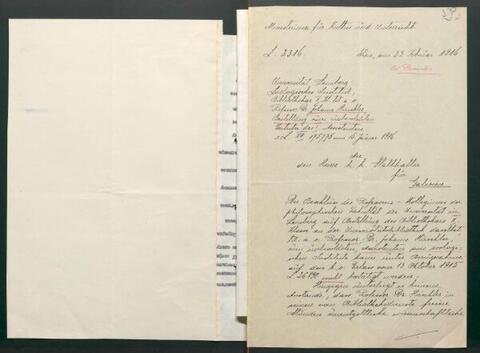 Ministerium für Kultus und Unterricht.
Z. 2386. Wien, am 23. Februar 1916
Universität Lemberg
Zoologisches Institut,
Bibliothekar
Professor Dr. Johann Hirschler,
Bestellung zum
Assistenten
Z. VII 175/75 15. Jänner 1916
An
den Herrn k. k. Statthalter
für
Galizien
Der Beschluss des Professoren-Kollegiums der
philosophischen Fakultät der Universität in
Lemberg auf Bestellung des Bibliothekars II.
Klasse an der Universitätsbibliothek daselbst
tit. a. o. Professor Dr. Johann Hirschler,
zum Assistenten am zoologi-
schen Institute kann unter Bezugnahme
auf den h. o. Erlass vom 13. Oktober 1915
Z. nicht bestätigt werden.
Hingegen unterliegt es keinem
Anstande, dass Professor Dr. Hirschler in
seinen vom Bibliotheksdienste freien
Stunden unentgeltliche wissenschaftliche